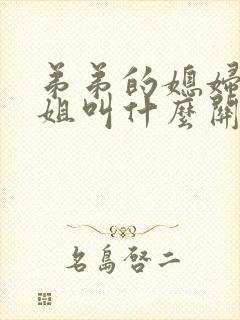 弟弟的媳婦
姐叫什麼關
名島啓二